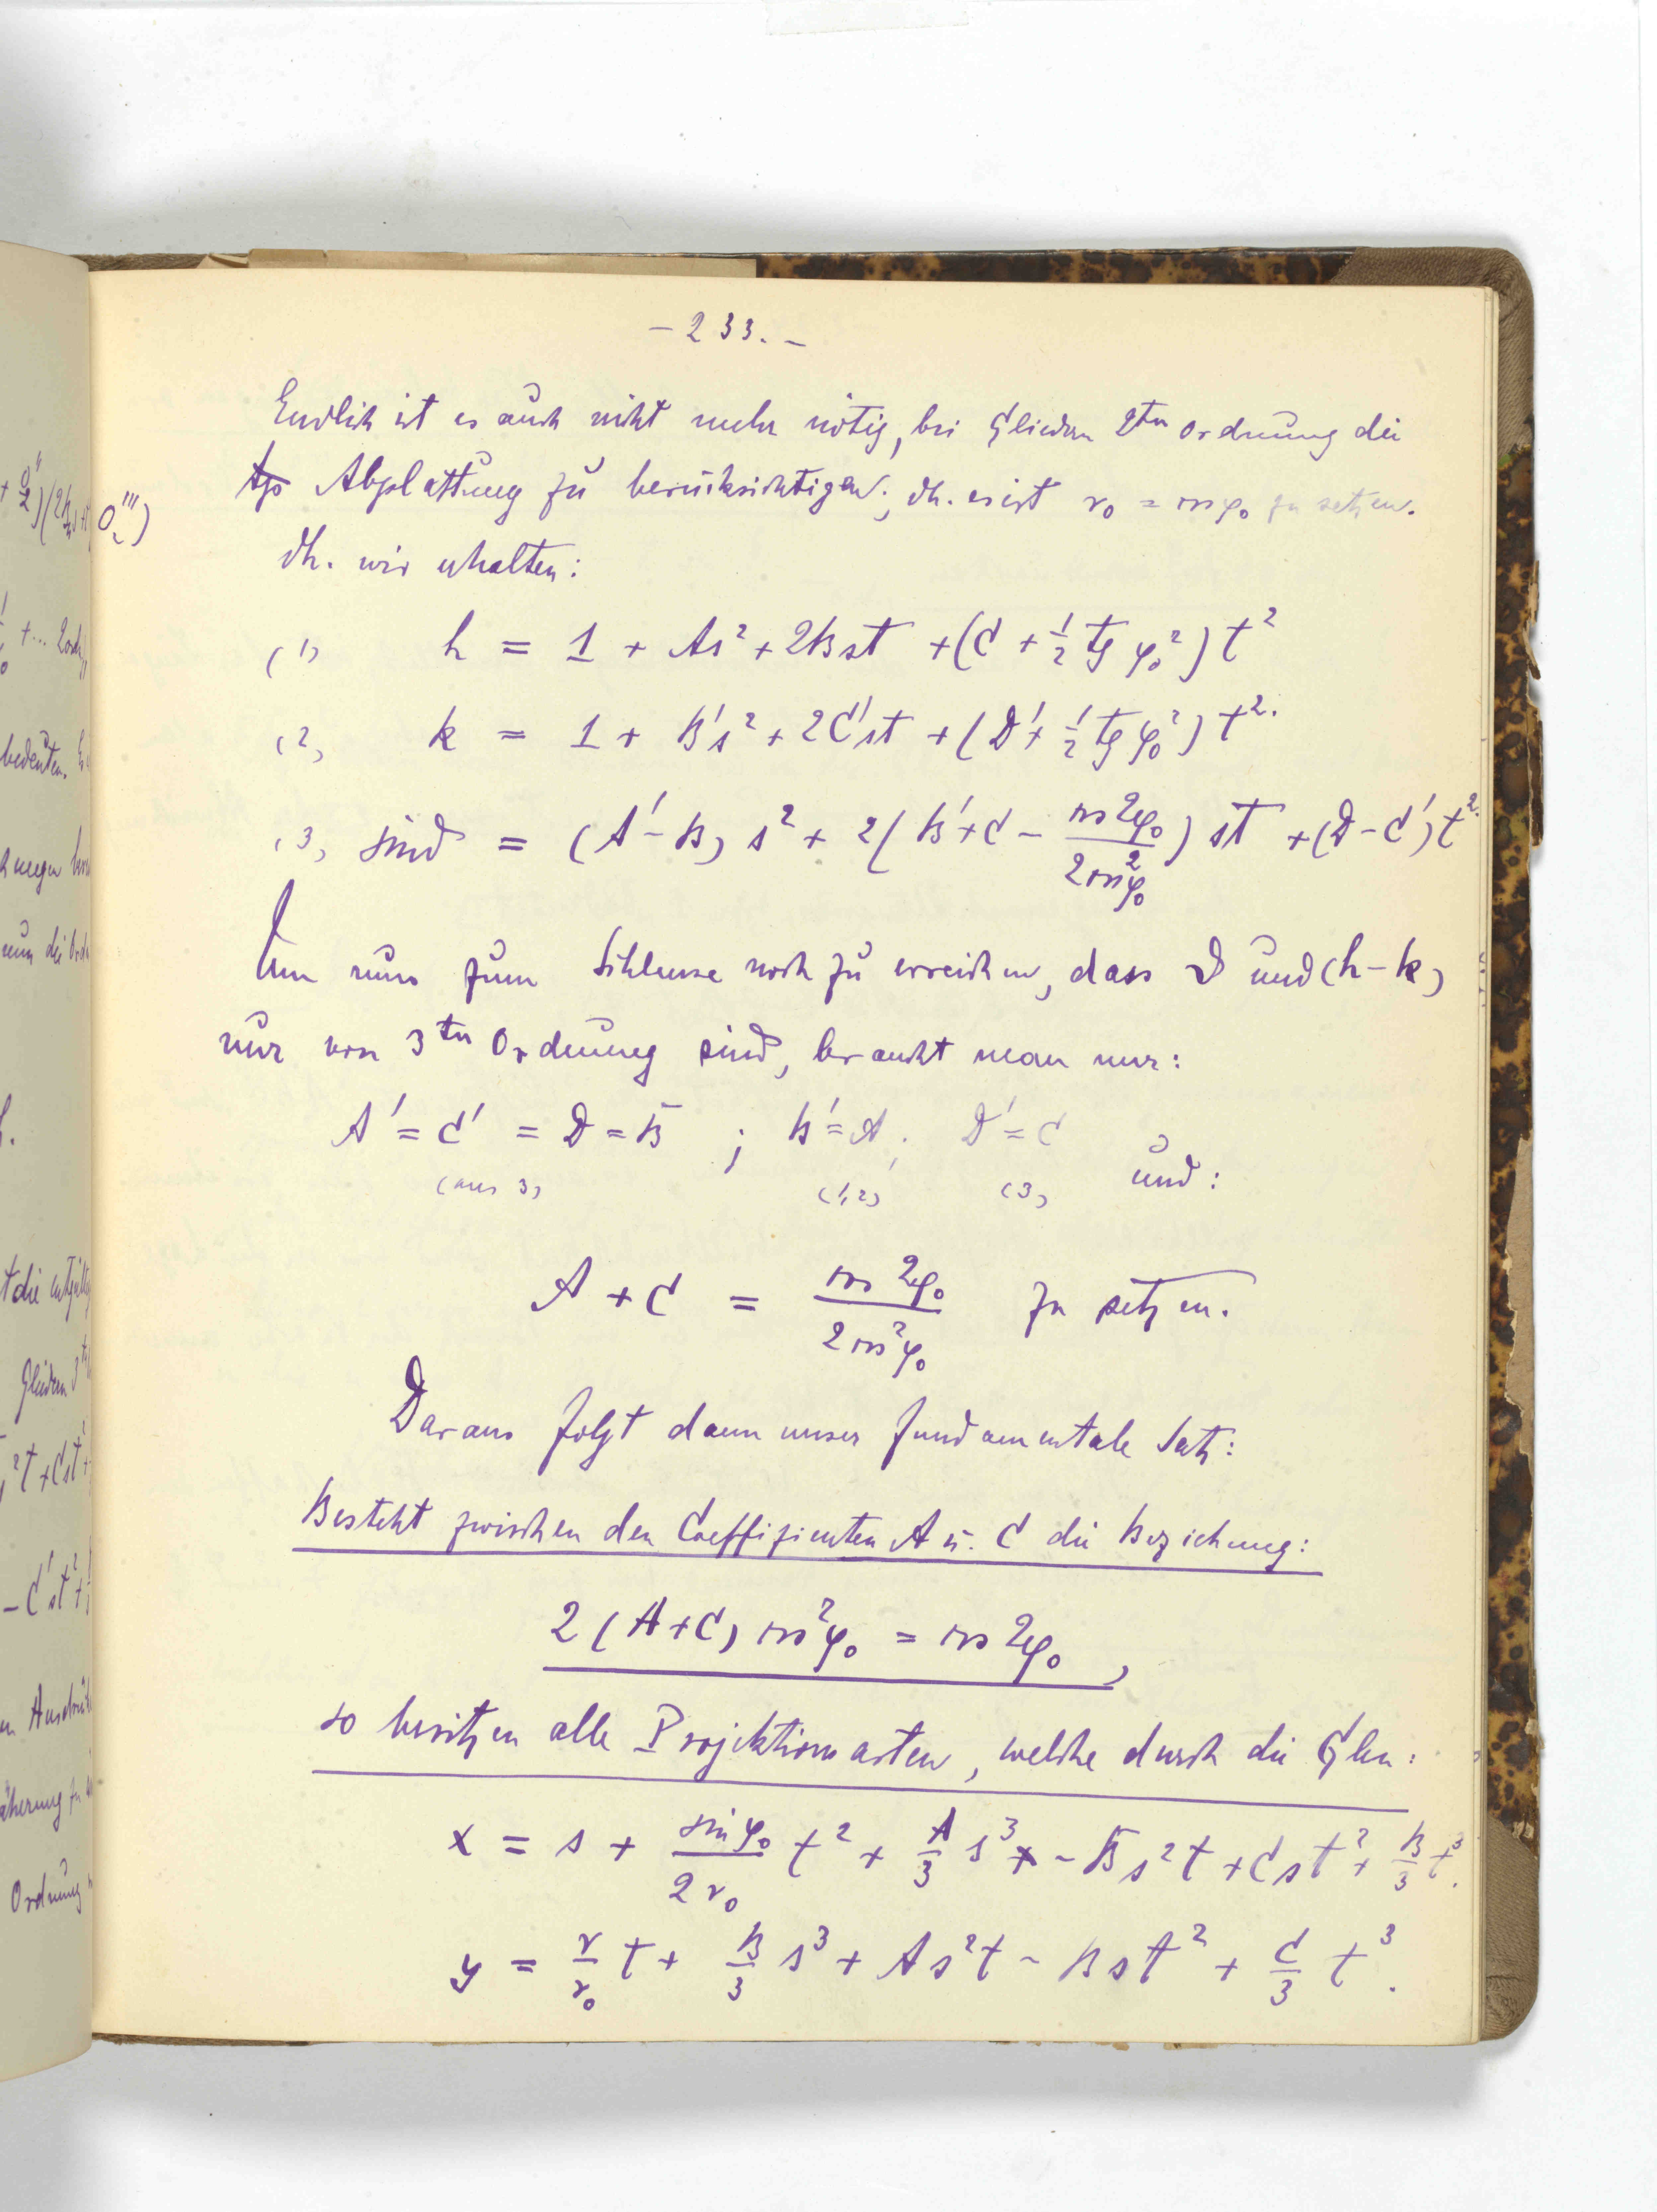 – 233. –
Endlich ist es auch nicht mehr nötig, bei Gliedern 2ten Ordnung die
Abplattung zu berücksichtigen; dh. es ist r₀ = cos φ₀ zu setzen.
dh. wir erhalten:
(1) h = 1 + As² + 2Bst + (C + 1/2 tg φ₀²) t²
(2) k = 1 + B's² + 2C'st + (D' + 1/2 tg φ₀²) t².
(3) sin ϑ = (A' – B) s² + 2(B' + C – cos 2φ₀ / 2cos²φ₀) st + (D – C') t².
Um nun zum Schlusse noch zu erreichen, dass ϑ und (h – k)
nur von 3ten Ordnung sind, braucht man nur:
A' = C' = D = B ; B' = A ; D' = C
(aus 3) (1,2) (3) und:
A + C = cos 2φ₀ / 2cos²φ₀ zu setzen.
Daraus folgt dann unser fundamentale Satz:
Besteht zwischen den Coeffizienten A u. C die Beziehung:
2 (A + C) cos²φ₀ = cos 2φ₀ ,
so besitzen alle Projektionsarten, welche durch die Glen:
x = s + sin φ₀ / 2r₀ t² + A/3 s³ – Bs²t + Cst² + B/3 t³.
y = r/r₀ t + B/3 s³ + As²t – Bst² + C/3 t³.